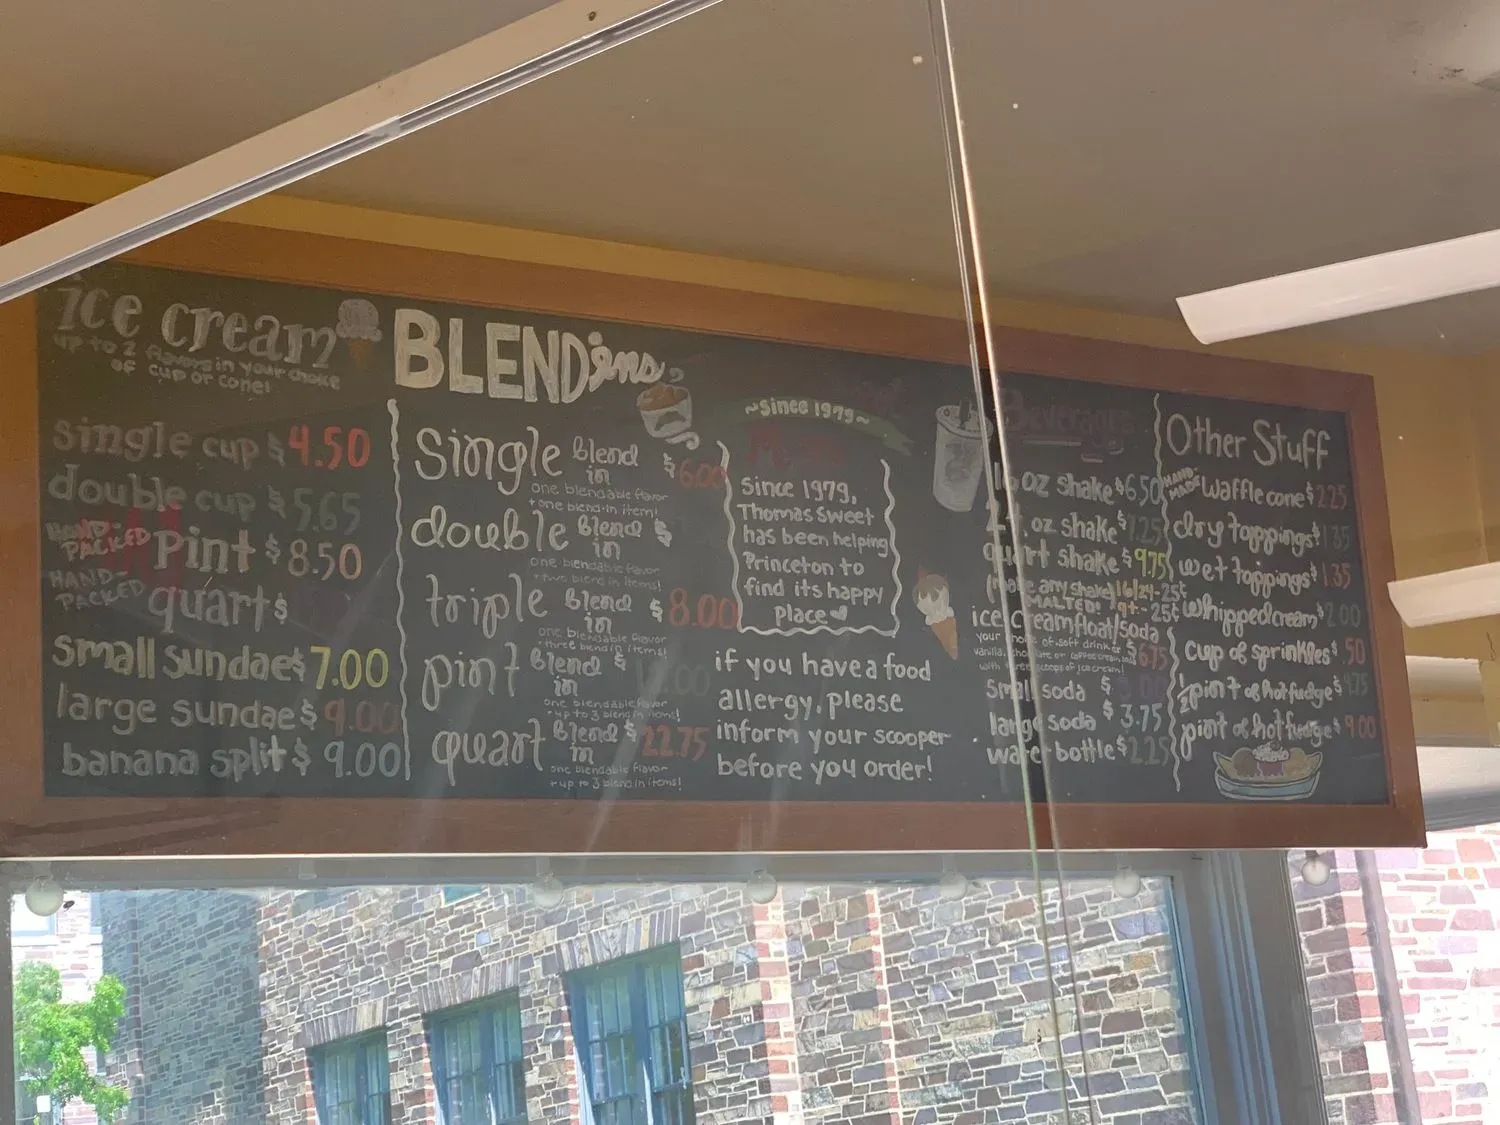 ice cream
up to 2 flavors in your choice
of cup or cone!
single cup $4.50
double cup $5.65
HAND-PACKED pint $8.50
HAND-PACKED quart $
small sundae $7.00
large sundae $9.00
banana split $9.00
BLENDins
single blend in $6.00
one blendable flavor
+one blend-in item!
double blend in $
one blendable flavor
+two blend in items!
triple blend in $8.00
one blendable flavor
+three blend in items!
pint blend in $
one blendable flavor
+up to 3 blend in items!
quart blend in $22.75
one blendable flavor
+up to 3 blend in items!
~Since 1979~
Since 1979,
Thomas Sweet
has been helping
Princeton to
find its happy
place
if you have a food
allergy, please
inform your scooper
before you order!
Beverages
oz shake $6.50
oz shake $7.25
quart shake $9.75
(make any shake 16/24-25¢
MALTED!
ice cream float/soda $6.75
your choice of soft drink or
vanilla, chocolate or coffee cream soda
with three scoops of ice cream!
small soda $
large soda $3.75
water bottle $2.25
Other Stuff
HAND-MADE waffle cone $2.25
dry toppings $1.35
wet toppings $1.35
whipped cream $2.00
cup of sprinkles $.50
1/2 pint of hot fudge $4.75
pint of hot fudge $9.00